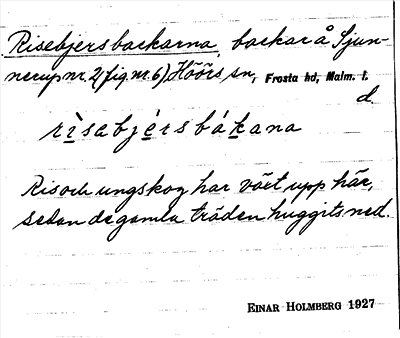 Risebjersbackarna, backar å Sjun-
nerup nr 2 (fig. nr. 6), Höörs sn, Frosta hd, Malm. l.
d.
rìsabjérsbákana
Ris och ungskog har växt upp här,
sedan de gamla träden huggits ned.
EINAR HOLMBERG 1927